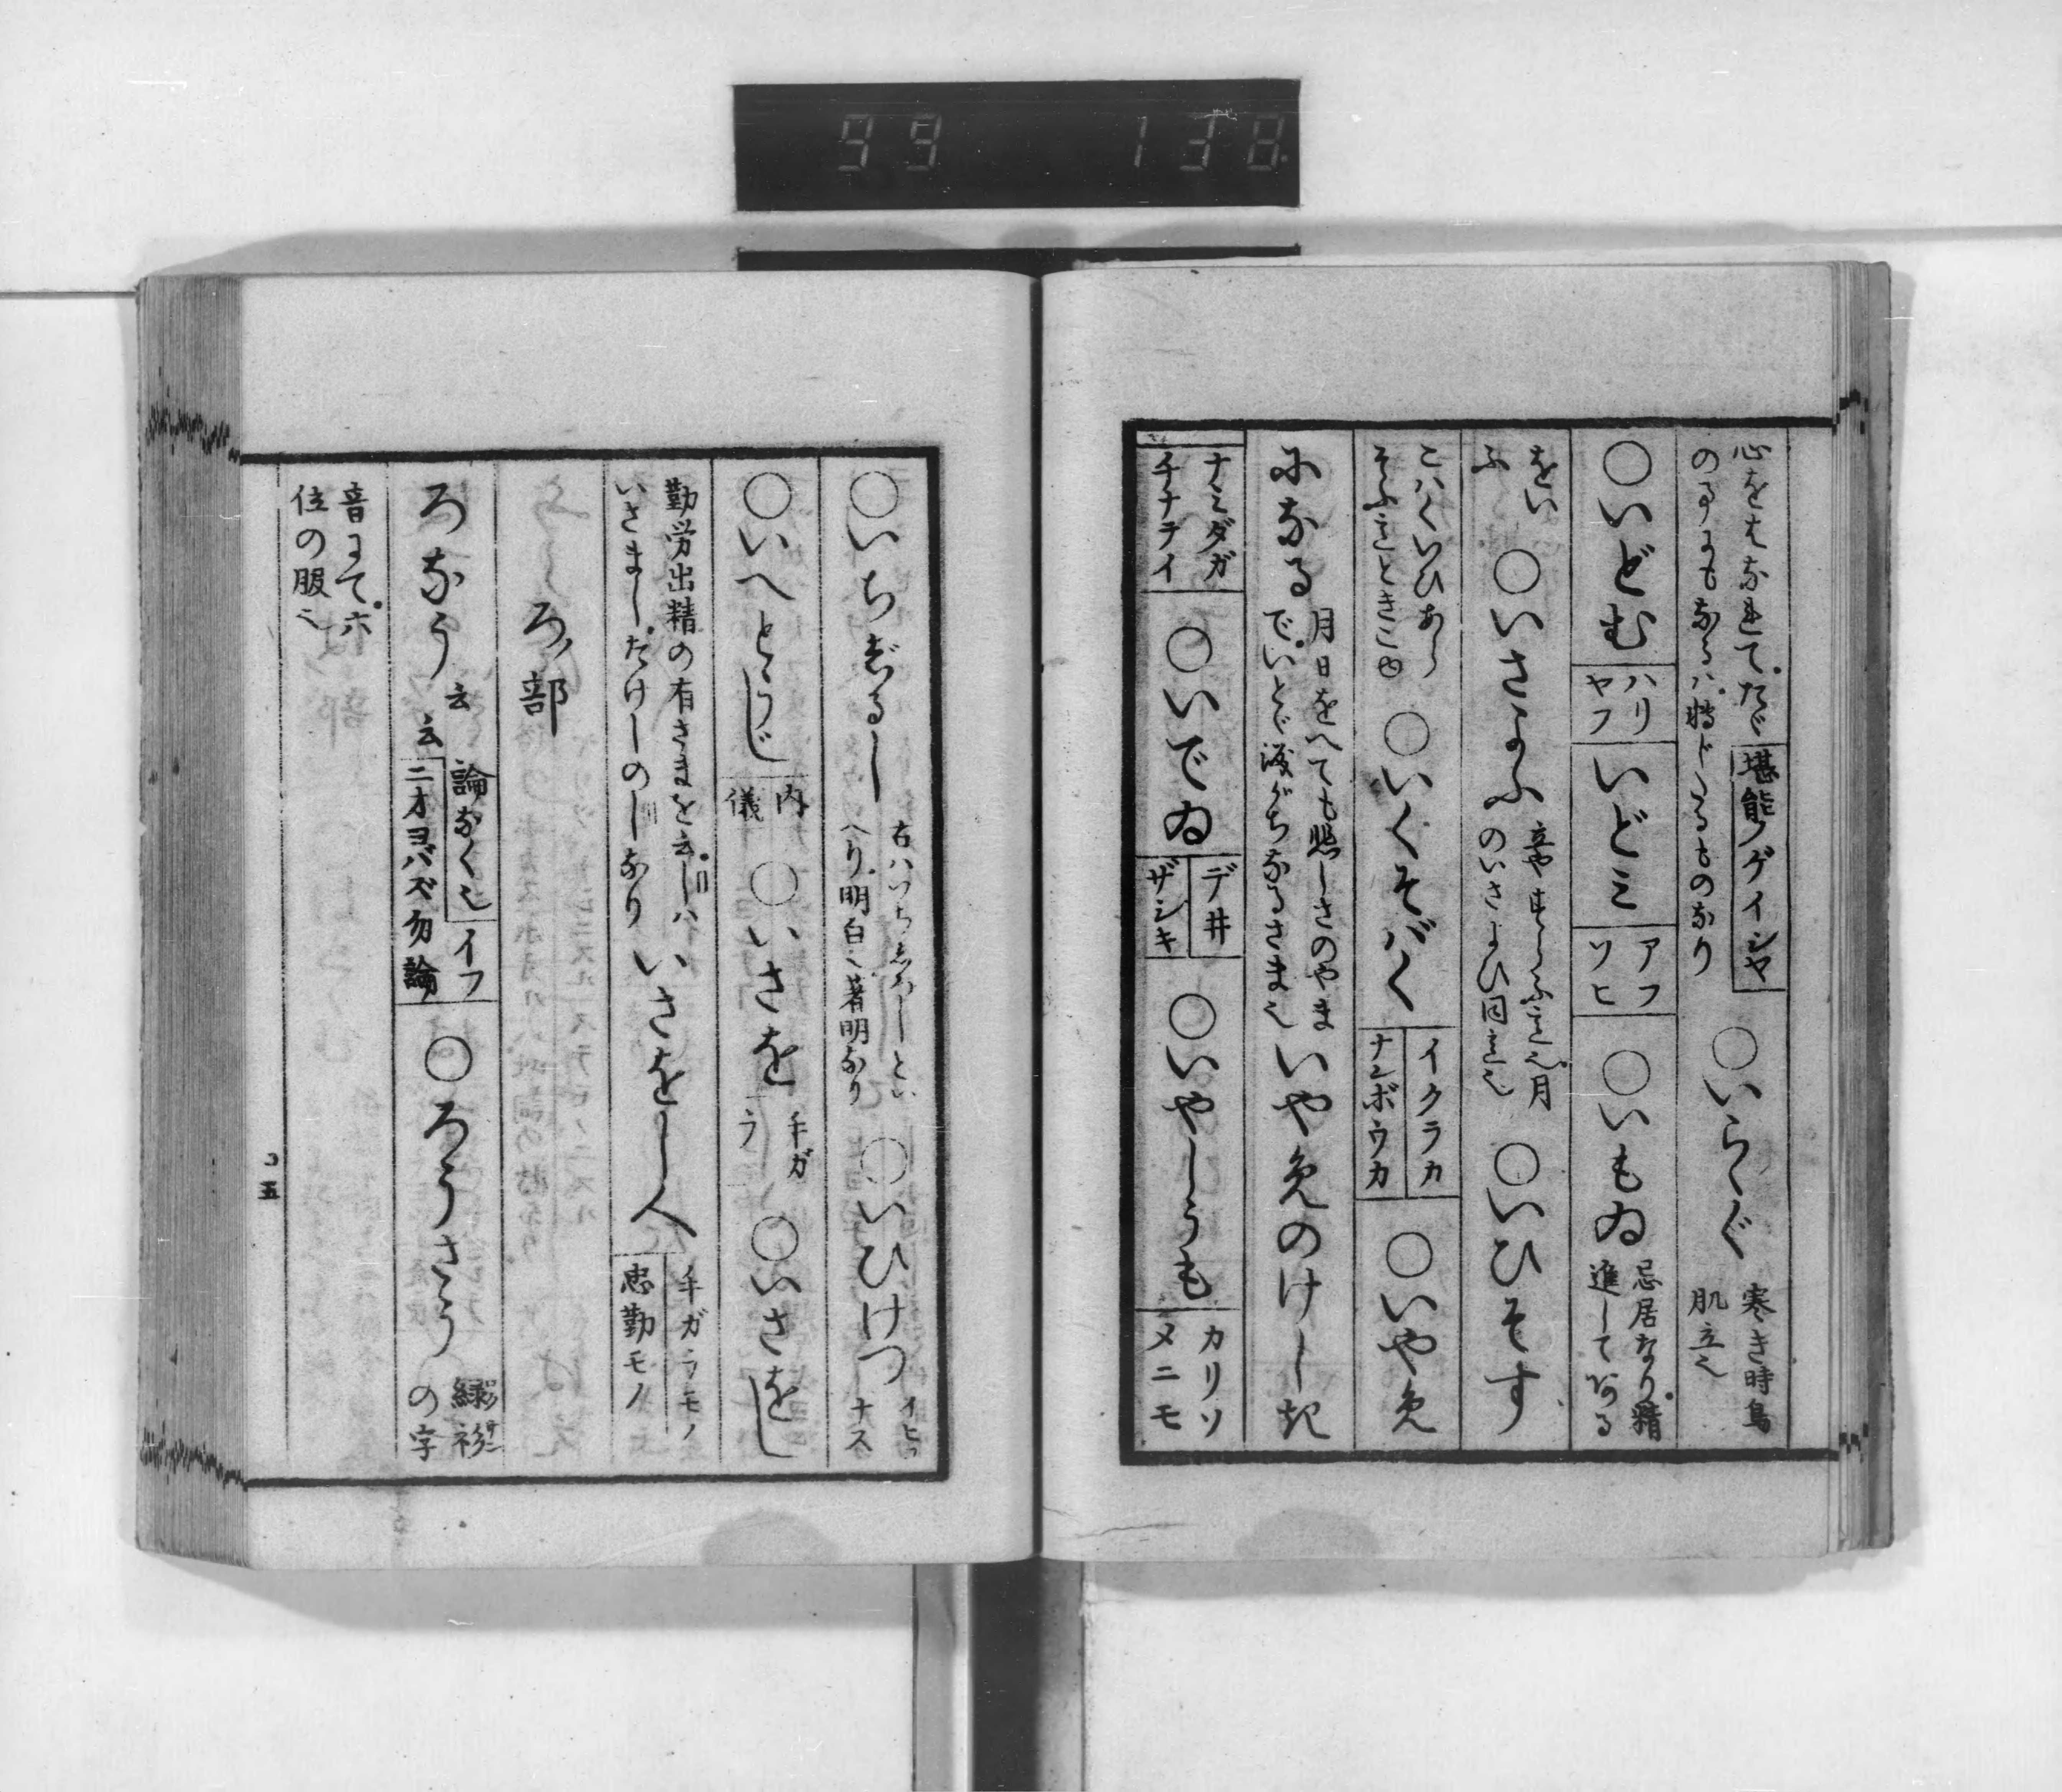 99 138
心をはなれてたゞ 堪能ノゲイシヤ
のみにもなるハ
○いらゝぐ 寒き時鳥
肌立也
○いどむ ハリ
ヤフ
いどミ アフ
ソヒ
○いもゐ 忌居なり精
進してゐる
をい
ふ
○いさよふ
月
のいさよひ同意也
○いひそす
こハくいひあ
○いくそバく イクラカ
ナンボウカ
○いや免
になる 月日をへても悲しさのやま
でいとゞ涙がちなるさま也
いや免のけしき
ナミダガ
チナテイ
○いでゐ デ井
ザシキ
○いやしうも カリソ
メニモ
○いちじるし 右ハいちしろしとい
へり明白也著明なり
○いひけつ イヒケ
ナス
○いへとうじ 内
儀
○いさを 手ガ
ラ
○いさをし
勤労出精の有さまを云しハ
いさましたけしのしなり
いさをし人 手ガラモノ
忠勤モノ
ろノ部
ろなう 云
云
論なく也 イフ
ニオヨバズ勿論
○ろうさう 緑衫
の字
音にて六
位の服也
五